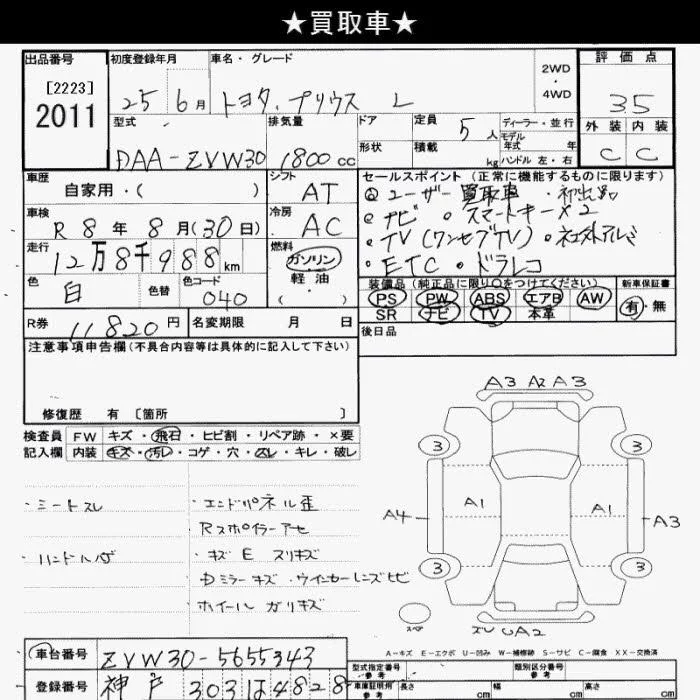 ★買取車★
出品番号
[2223]
2011
初度登録年月
25 6月
車名・グレード
トヨタ プリウス L
2WD
・
4WD
評価点
3.5
外装 内装
C C
型式
DAA-ZVW30
排気量
1800cc
ドア
形状
定員
5人
積載
kg
ディーラー・並行
モデル
年式 年
ハンドル 左・右
車歴
自家用・( )
シフト
AT
車検
R8年8月(30日)
冷房
AC
走行
12万8千988km
燃料
ガソリン
軽油
( )
色
白
色替
色カラーコード
040
R券
11820円
名変期限 月 日
セールスポイント(正常に機能するものに限ります)
ユーザー買取車・初出品
ナビ スマートキー×2
TV(ワンセグTV)・社外アルミ
ETC・ドラレコ
装備品(純正品に限り○をつけてください)
PS PW ABS エアB AW
SR ナビ TV 本革
新車保証書
有・無
後日品
注意事項申告欄(不具合内容等は具体的に記入して下さい)
修復歴 有 [箇所 ]
検査員
記入欄
FW キズ・飛石・ヒビ割・リペア跡・×要
内装 キズ・汚レ・コゲ・穴・スレ・キレ・破レ
・シートスレ
・ハンドルハゲ
・エンドパネル歪
Rスポイラーアセ
・キズ E スリキズ
・Dミラーキズ・ウインカーレンズヒビ
ホイールガリキズ
A3 A2 A3
3 3
A4 A1 A1 A3
3 3
スペア
UA2
A-キズ E-エクボ U-凹み W-補修跡 S-サビ C-腐食 XX-交換済
車台番号
ZVW30-5655343
登録番号
神戸 303 は 4828
型式指定番号
参考
類別区分番号
参考
車庫証明用
参考
長さ cm
幅 cm
高さ cm